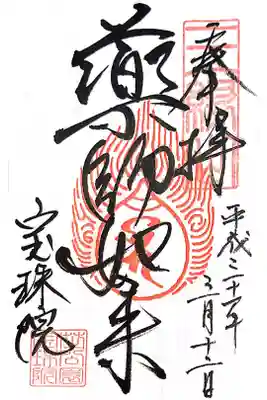 奉拝
平成三十一年
三月十三日
薬師如来
宝珠院